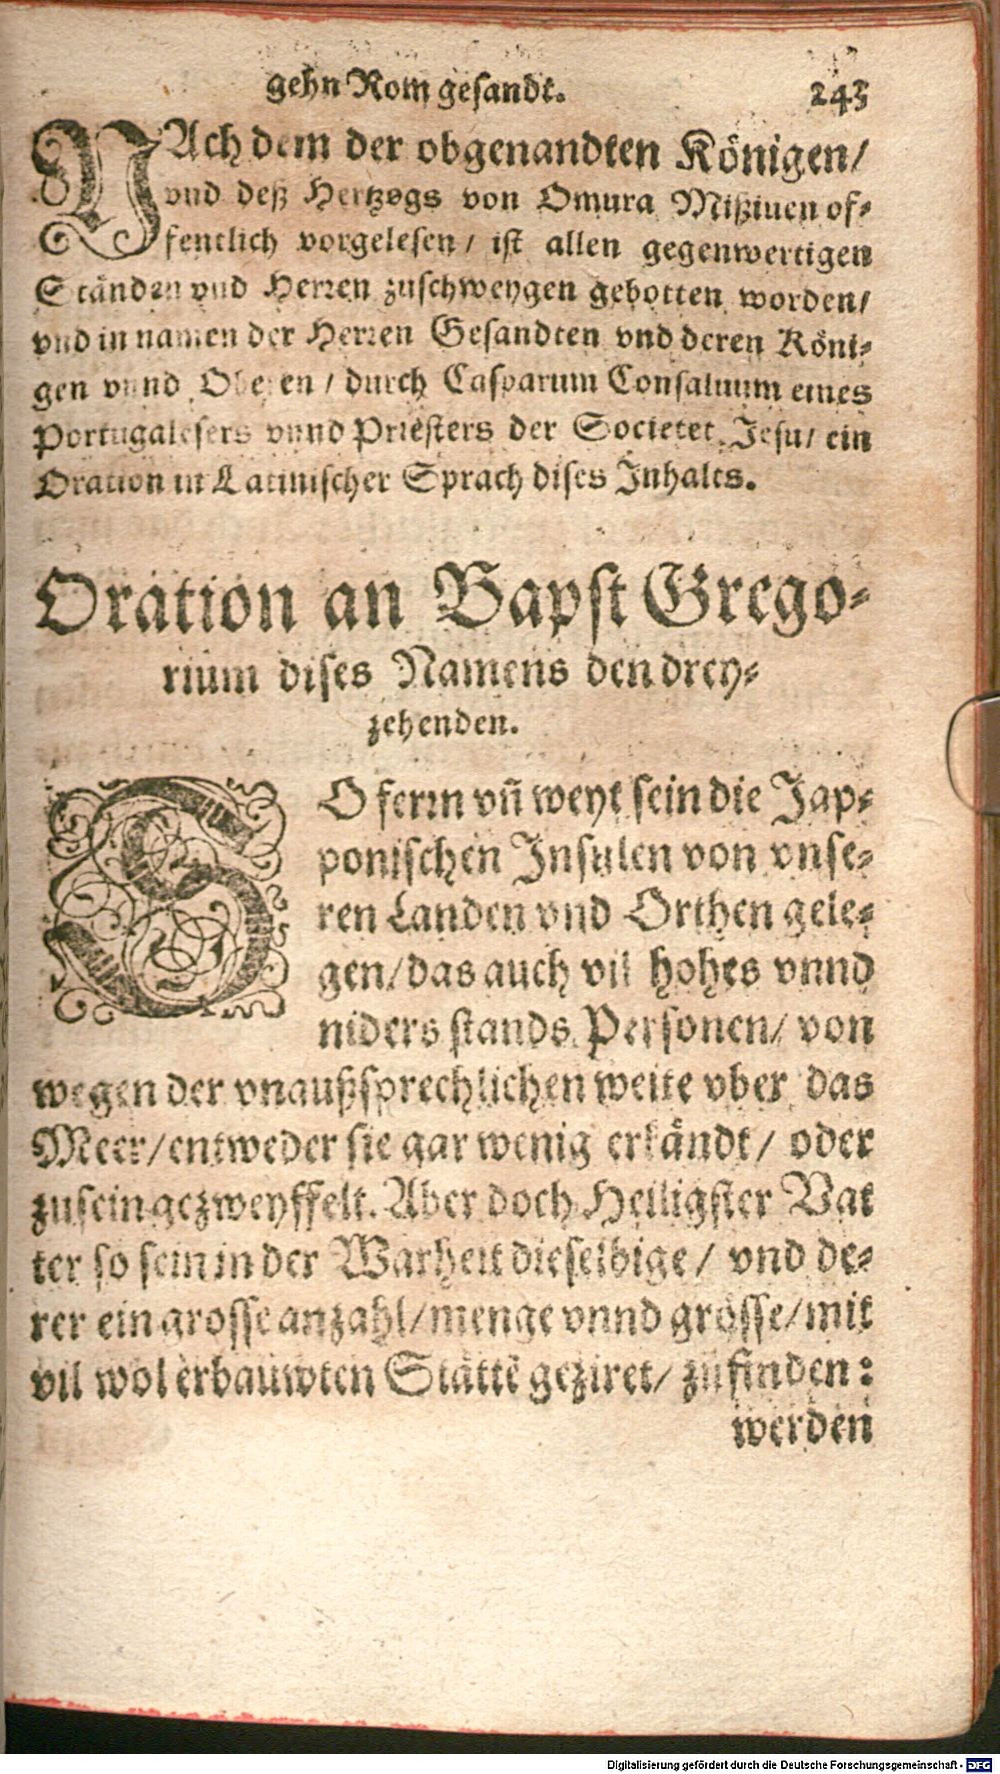 gehn Rom gesandt. 243
NAch dem der obgenandten Königen/
vnd deß Hertzogs von Omura Mißiuen of-
fentlich vorgelesen/ ist allen gegenwertigen
Ständen vnd Herren zuschweygen gebotten worden/
vnd in namen der Herren Gesandten vnd deren Köni-
gen vnnd Oberen/ durch Casparum Consaluum eines
Portugalesers vnnd Priesters der Societet Jesu/ ein
Oration in Latinischer Sprach dises Inhalts.
Oration an Bapst Grego-
rium dises Namens den drey-
zehenden.
SO ferrn vñ weyt sein die Jap-
ponischen Insulen von vnse-
ren Landen vnd Orthen gele-
gen/ das auch vil hohes vnnd
niders stands Personen/ von
wegen der vnaußsprechlichen weite vber das
Meer/ entweder sie gar wenig erkändt/ oder
zusein gezweyffelt. Aber doch Heiligster Vat
ter so sein in der Warheit dieselbige/ vnd de-
rer ein grosse anzahl/ menge vnnd grösse/ mit
vil wol erbauwten Stättē geziret/ zufinden:
werden
Digitalisierung gefördert durch die Deutsche Forschungsgemeinschaft - DFG